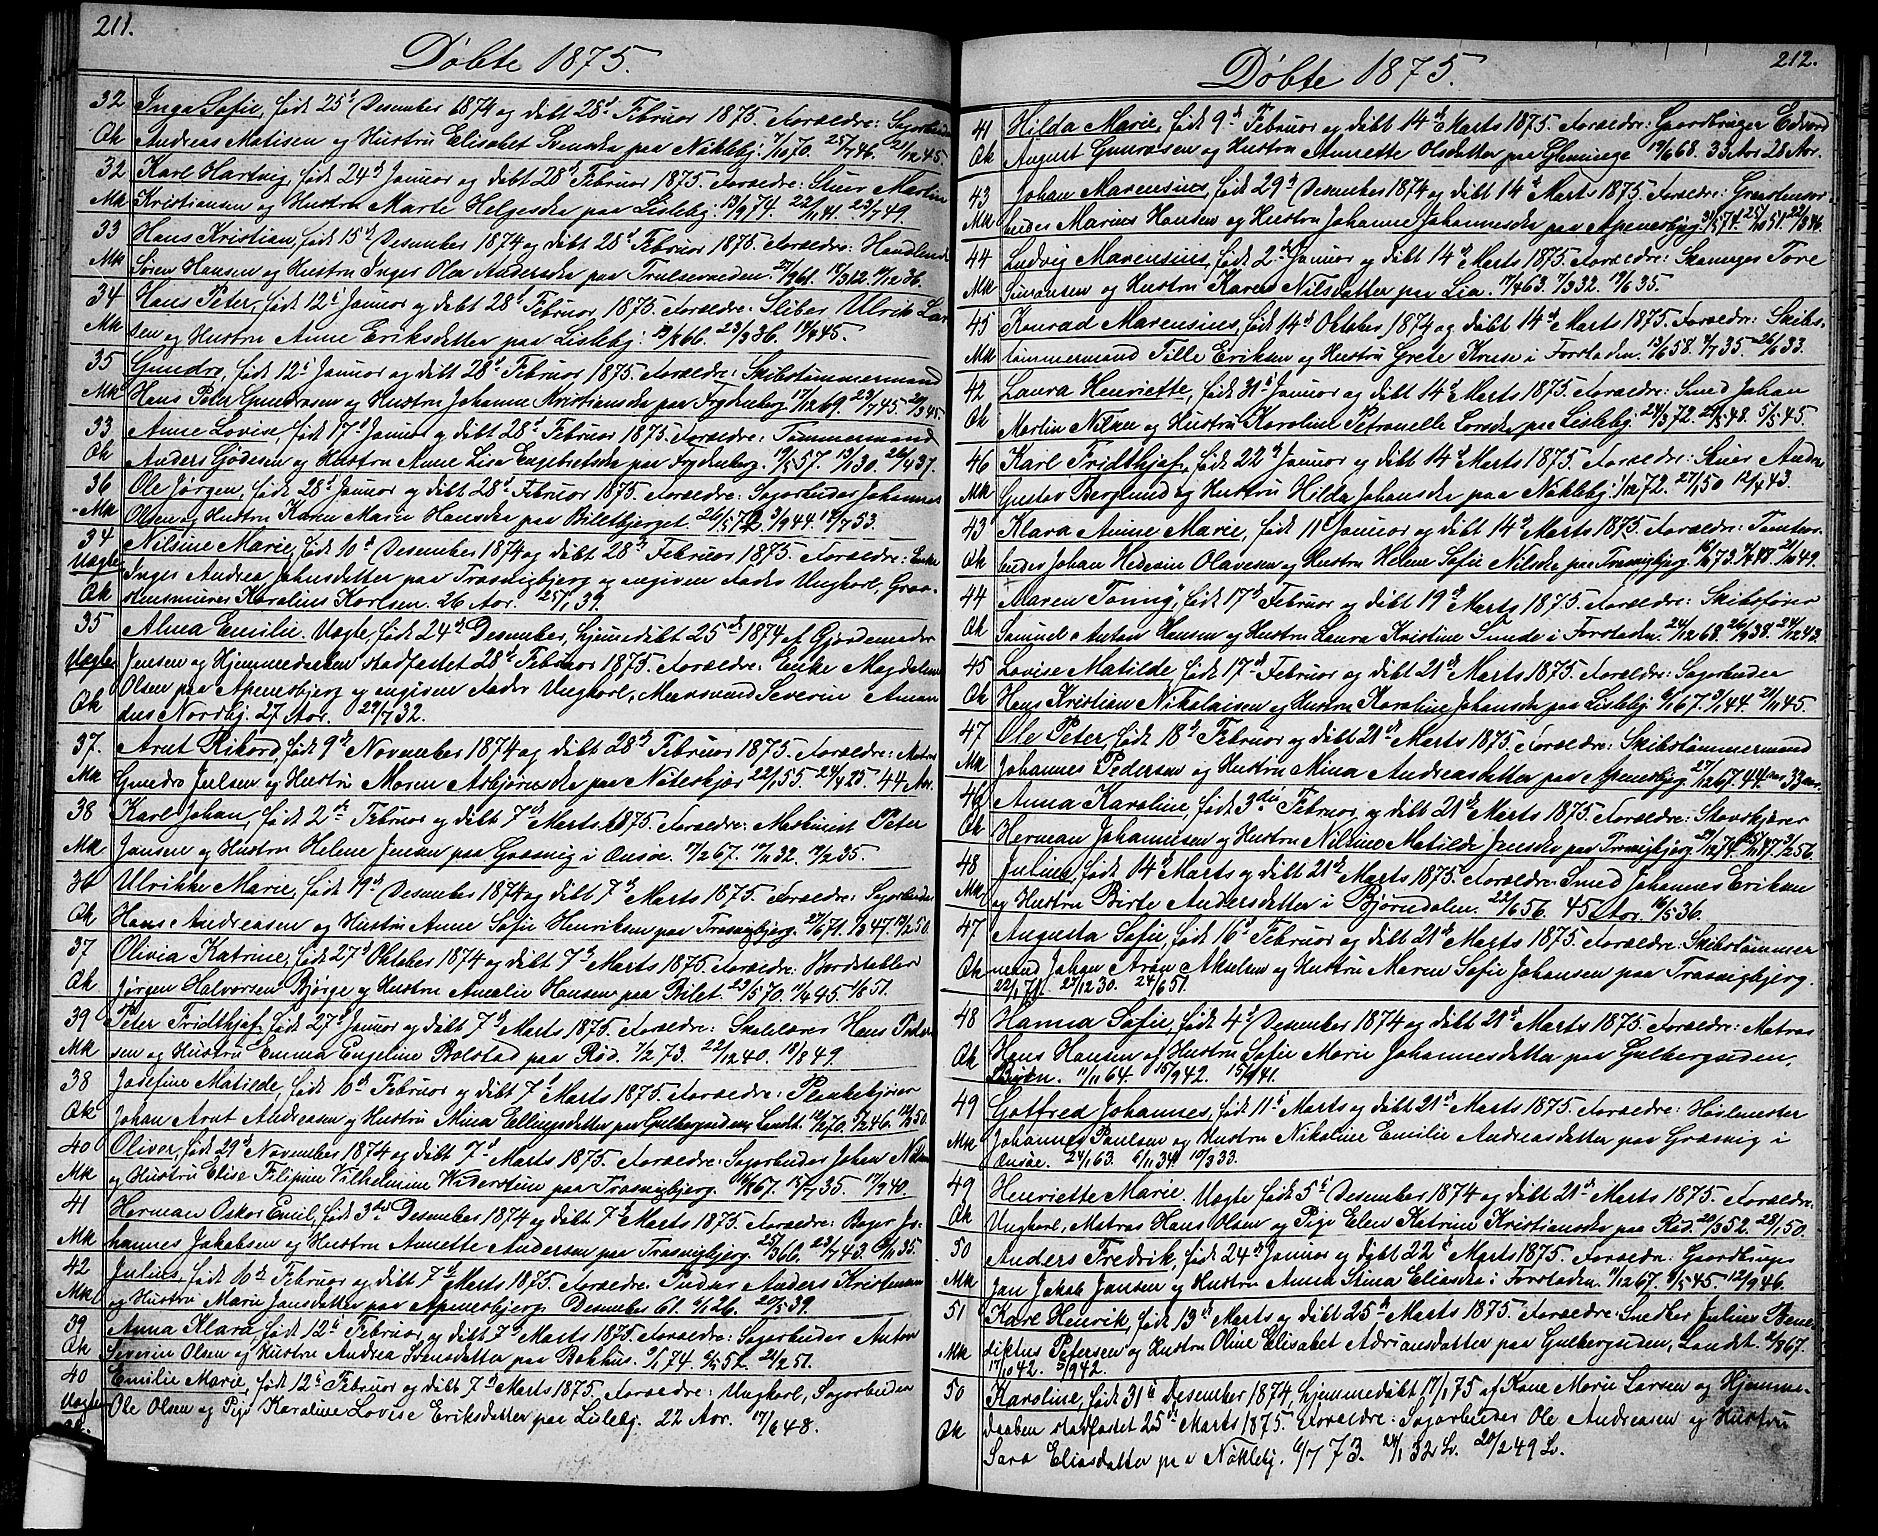 211.
Döbte 1875.
32 Inga Sofie, født 25d Desember 1874 og døbt 28d Februar 1875. Foreldre: Sagarbeider
Qk Andreas Matisen og Hustru Elisabet Svensda paa Nökleby. 7/11 70. 25/7 46. 21/12 45
32 Karl Hartvig, født 24d Januar og døbt 28d Februar 1875. Foreldre: Stuer Martin
Mk Kristiansen og Hustru Marte Helgesda paa Lisleby. 13/9 74. 22/11 41. 23/7 49.
33 Hans Kristian, født 15d Desember 1874 og døbt 28d Februar 1875. Foreldre: Handlende
Mk Sören Hansen og Hustru Inger Olea Andersda paa Trulserveden. 27/9 61. 18/3 12. 11/12 36.
34 Hans Peter, født 12d Januar og døbt 28d Februar 1875. Foreldre: Sliber Ulrik Lar
Mk sen og Hustru Anne Eriksdatter paa Lisleby: 23/3 36.
35 Gundro, født 12d Januar og døbt 28d Februar 1875. Foreldre: Skibstömmermand
Mk Hans Peter Gundrosen og Hustru Johanne Kristiansda paa Frydenberg. 17/12 69. 29/7 45. 20/3 45
33 Anne Lovise, født 17d Januar og døbt 28d Februar 1875. Foreldre: Tömmermand
Qk Anders Gjödesen og Hustru Anne Lisa Engebretsda paa Frydenberg. 19/5 57. 13/1 30. 26/4 37.
36 Ole Jörgen, født 28d Januar og døbt 28d Februar 1875. Foreldre: Sagarbeider Johannes
Mk Olsen og Hustru Karen Marie Hansda paa Biletbjerget. 26/5 72. 3/9 44. 19/7 53.
34 Nilsine Marie, født 10d Desember 1874 og døbt 28d Februar 1875. Foreldre: Enke
Uægte Inger Andrea Johnsdatter paa Trosvigbjerg og angiven Fader Ungkarl, Graa-
Qk stensmurer Karolius Karlsen. 26 Aar. 25/1 39.
35 Alma Emilie. Uægte, født 24d Desember, hjemmedöbt 25de 1874 af Gjordemoder
Uægte Jensen og Hjemmedaaben stadfæstet 28d Februar 1875. Foreldre: Enke Magdalene
Qk Olsen paa Apenesbjerg og angiven Fader Ungkarl, Muursvend Severin Aman
dus Nordby. 27 Aar. 29/7 32.
37. Arnt Rikard, født 9d November 1874 og døbt 28d Februar 1875. Foreldre: Matros
Mk Gundro Julsen og Hustru Maren Asbjörnsda paa Nöteskjær 22/1 55. 24/4 25. 44 Aar.
38 Karl Johan, født 2d Februar og døbt 7d Marts 1875. Foreldre: Maskinist Peter
Mk Jansen og Hustru Helene Jensen paa Græsvig i Onsøe. 17/2 67. 17/11 32. 19/2 35.
36 Ulrikke Marie, født 19d Desember 1874 og døbt 7d Marts 1875. Foreldre: Sagarbeider
Qk Hans Andreasen og Hustru Anne Sofie Henriksen paa Trosvigbjerg. 27/6 71. 47. 19/2 50.
37 Olivia Katrine, født 27d Oktober 1874 og døbt 7d Marts 1875. Foreldre: Bordstabler
Qk Jörgen Halvorsen Björge og Hustru Amalie Hansen paa Bilet. 23/5 70. 11/4 45. 51.
39 Peter Fridthjof, født 27d Januar og døbt 7d Marts 1875. Foreldre: Skolelærer Hans Peder
Mk sen og Hustru Emma Engeline Bolstad paa Röd. 7/2 73. 22/12 40. 18/8 49.
38 Josefine Matilde, født 6d Februar og døbt 7d Marts 1875. Foreldre: Plankekjører
Qk Johan Arnt Andreasen og Hustru Mina Ellingsdatter paa Gulbergsiden, Landt. 12/2 70. 46. 50.
40 Oliver, født 29d November 1874 og døbt 7d Marts 1875. Foreldre: Sagarbeider Johan Nilsen
Mk og Hustru Elise Filipine Vilhelmine Widersten paa Trosvigbjerg. 67. 15/7 35. 17/9 40.
41 Herman Oskar Emil, født 3die Desember 1874 og døbt 7d Marts 1875. Foreldre: Bager Jo-
Mk hannes Jakobsen og Hustru Annette Andersen paa Trosvigbjerg. 25/3 66. 23/7 43. 35.
42 Julius, født 10d Februar og døbt 7d Marts 1875. Foreldre: Anders Kristiansen
Mk og Hustru Marie Jansdatter paa Apenesbjerg Desember 61. 26. 21/5 39.
39 Anna Klara, født 12d Februar, og døbt 7d Marts 1875. Foreldre: Sagarbeider Anton
Qk Severin Olsen og Hustru Andrea Svensdatter paa Bakhus. 74. 52. 21/2 51.
40 Emilie Marie, født 12d Februar og døbt 7d Marts 1875. Foreldre: Ungkarl, Sagarbeider
Uægte Ole Olsen og Pige Karoline Lovise Eriksdatter paa Lisleby. 22 Aar. 17/6 48.
Qk.
212.
Döbte 1875.
41 Hilda Marie, født 9d Februar og døbt 14d Marts 1875. Foreldre: Gaardbruger Edvard
Qk August Gunrosen og Hustru Annette Olsdatter paa Glemmege 19/6 68. 33 Aar 28 Aar.
43 Johan Marensius, født 29d Desember 1874 og døbt 14d Marts 1875. Foreldre: Graastensar
Mk beider Marius Hansen og Hustru Johanne Johannesda paa Apenesbjerg. 71. 51. 46.
44 Ludvig Marensius, født 2d Januar og døbt 14d Marts 1875. Foreldre: Skomager Tore
Mk Simonsen og Hustru Karen Nilsdatter paa Lia. 17/4 63. 7/3 32. 19/6 35.
45 Konrad Marensius, født 14d Oktober 1874 og døbt 14d Marts 1875. Foreldre: Skibs-
Mk tömmermand Tille Eriksen og Hustru Grete Kruse i Forstaden. 13/6 58. 35. 26/6 33.
42 Laura Henriette, født 31d Januar og døbt 14d Marts 1875. Foreldre: Smed Johan
Qk Martin Nilsen og Hustru Karoline Petronelle Larsda paa Lisleby. 24/3 72. 48. 5/5 45.
46 Karl Fridthjof, født 22d Januar og døbt 14d Marts 1875. Foreldre: Stuer Anders
Mk Gustav Berglund og Hustru Hilda Johansda paa Nökleby. 1/12 72. 27/1 50 12/4 43.
43 Klara Anne Marie, født 11d Januar og døbt 14d Marts 1875. Foreldre: Tomtar-
Qk beider Johan Hedevin Olavesen og Hustru Helene Sofie Nilsda paa Trosvigbjerg. 73. 48. 49.
44 "Maren Tonny", født 17d Februar og døbt 19d Marts 1875. Foreldre: Skibsfører
Qk Samuel Anton Hansen og Hustru Laura Kristine Sunde i Forstaden. 24/12 68. 26/9 38. 24/12 42.
45 Lovise Matilde, født 17d Februar og døbt 21d Marts 1875. Foreldre: Sagarbeider
Qk Hans Kristian Nikolaisen og Hustru Karoline Johansda paa Lisleby. 67. 44. 21/11 45.
47 Ole Peter, født 18d Februar og døbt 21d Marts 1875. Foreldre: Skibstömmermand
Mk Johannes Pedersen og Hustru Mina Andreasdatter paa Apenesbjerg. 27/12 67. 44 aar. 33 aar.
46 Anna Karoline, født 3die Februar og døbt 21d Marts 1875. Foreldre: Skovskjører
Qk Herman Johannesen og Hustru Nilsine Matilde Jensda paa Trosvigbjerg. 29/12 74. 47. 3/2 56.
48 Julius, født 14d Marts og døbt 21d Marts 1875. Foreldre: Smed Johannes Eriksen
Mk og Hustru Birte Andersdatter i Björndalen. 22/6 56. 45 Aar. 16/5 36.
47 Augusta Sofie, født 16d Februar og døbt 21d Marts 1875. Foreldre: Skibstömmer
Qk mand Johan Aron Akselsen og Hustru Maren Sofie Johansen paa Trosvigbjerg.
22/1 71. 27/12 30. 24/6 51.
48 Hanna Sofie, født 4d Desember 1874 og døbt 21d Marts 1875. Foreldre: Matros
Qk Hans Hansen og Hustru Sofie Marie Johannesdatter paa Gulbergsiden,
Bröen. 11/11 64. 15/9 42. 15/9 41.
49 Gotfred Johannes, født 11d Marts og døbt 21d Marts 1875. Foreldre: Hörlmester
Mk Johannes Paulsen og Hustru Nikoline Emilie Andreasdatter paa Græsvig i
Onsøe. 24/1 63. 6/11 34. 10/3 33.
49 Henriette Marie. Uægte født 5d Desember 1874 og døbt 21d Marts 1875. Foreldre:
Qk Ungkarl, Matros Hans Olsen og Pige Elen Katrine Kristiansda paa Röd. 20/3 52. 28/1 50.
50 Anders Fredrik, født 24d Januar og døbt 22d Marts 1875. Foreldre: Gaardbruger
Mk Jan Jakob Jansen og Hustru Anna Stina Eliasda i Forstaden. 11/12 67. 9/5 45 12/9 46.
51 Karl Henrik, født 13d Marts og døbt 25d Marts 1875. Foreldre: Snedker Julius Bene-
Mk diktus Petersen og Hustru Oline Elisabet Adriansdatter paa Gulbergsiden, Landt. 21/8 67.
17/10 42. 5/9 42.
50 Karoline, født 31d Desember 1874, hjemmedöbt 17/1 75 af Kone Marie Larsen og Hjemme-
Qk daaben stadfæstet 25d Marts 1875. Foreldre: Sagarbeider Ole Andreasen og Hustru
Sara Eliasdatter paa Nökleby. 6/7 73. 24/1 32 Sv. 20/2 49 Sv.